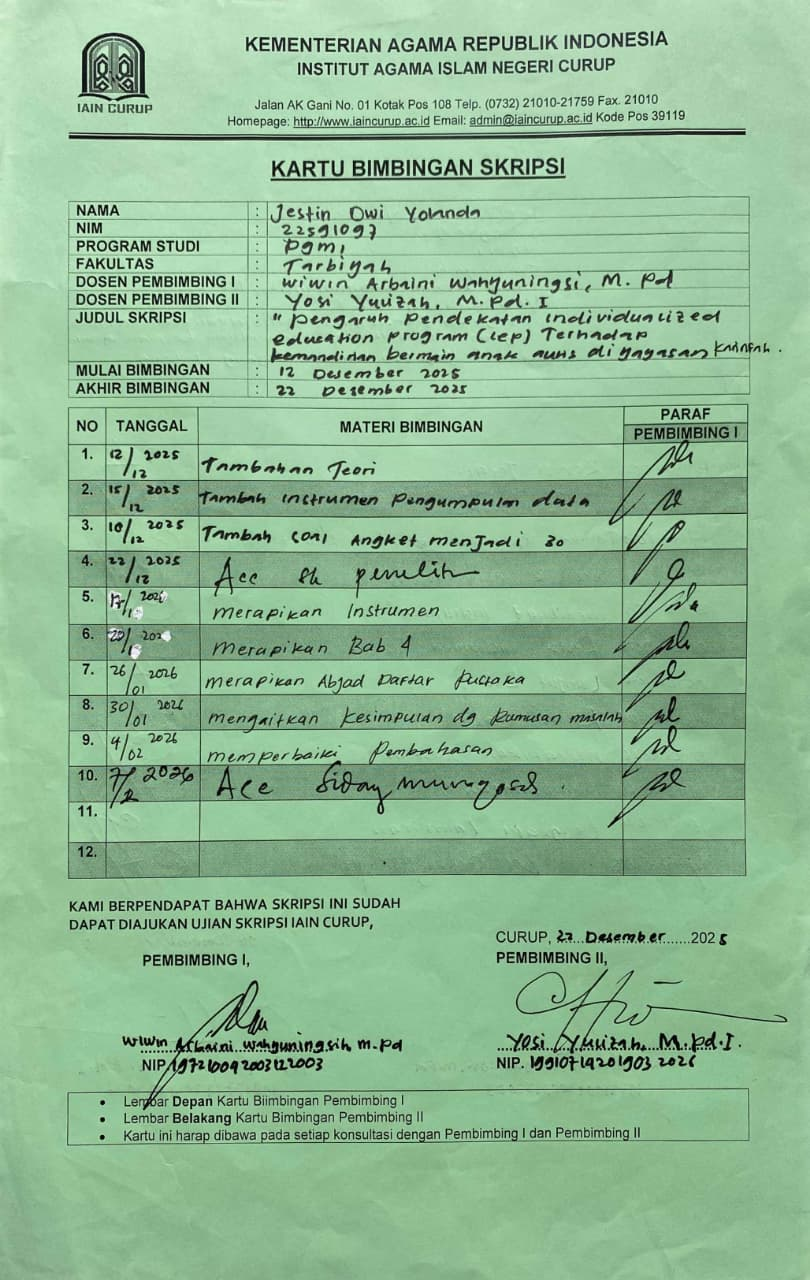 IAIN CURUP
KEMENTERIAN AGAMA REPUBLIK INDONESIA
INSTITUT AGAMA ISLAM NEGERI CURUP
Jalan AK Gani No. 01 Kotak Pos 108 Telp. (0732) 21010-21759 Fax. 21010
Homepage: http://www.iaincurup.ac.id Email: admin@iaincurup.ac.id Kode Pos 39119
KARTU BIMBINGAN SKRIPSI
NAMA : Jestin Dwi Yolanda
NIM : 22591097
PROGRAM STUDI : PGMI
FAKULTAS : Tarbiyah
DOSEN PEMBIMBING I : Wiwin Arbaini Wahyuningsi, M.Pd
DOSEN PEMBIMBING II : Yosi Yulizah, M.Pd.I
JUDUL SKRIPSI : "Pengaruh Pendekatan Individualized
education program (iep) Terhadap
kemandirian bermain anak autis di yayasan
MULAI BIMBINGAN : 12 Desember 2025
AKHIR BIMBINGAN : 22 Desember 2025
NO TANGGAL MATERI BIMBINGAN PARAF
PEMBIMBING I
1. 12/12 2025 Tambahan Teori
2. 15/12 2025 Tambah instrumen Pengumpulan data
3. 10/12 2025 Tambah soal Angket menjadi 30
4. 22/12 2025 Acc SK penelitin
5. 2026 merapikan Instrumen
6. merapikan Bab 4
7. 26/01 2026 merapikan Abjad Daftar Pustaka
8. 30/01 2026 mengaitkan kesimpulan dg Rumusan masalah
9. 4/02 2026 memperbaiki Pembahasan
10. 7/2 2026 Acc Sidang munaqosah.
11.
12.
KAMI BERPENDAPAT BAHWA SKRIPSI INI SUDAH
DAPAT DIAJUKAN UJIAN SKRIPSI IAIN CURUP,
CURUP, 22 Desember 2025
PEMBIMBING I, PEMBIMBING II,
Wiwin Arbaini Wahyuningsih, M.Pd Yosi Yulizah, M.Pd.I.
NIP. 197210092003122003 NIP. 199107192019032026
• Lembar Depan Kartu Biimbingan Pembimbing I
• Lembar Belakang Kartu Bimbingan Pembimbing II
• Kartu ini harap dibawa pada setiap konsultasi dengan Pembimbing I dan Pembimbing II